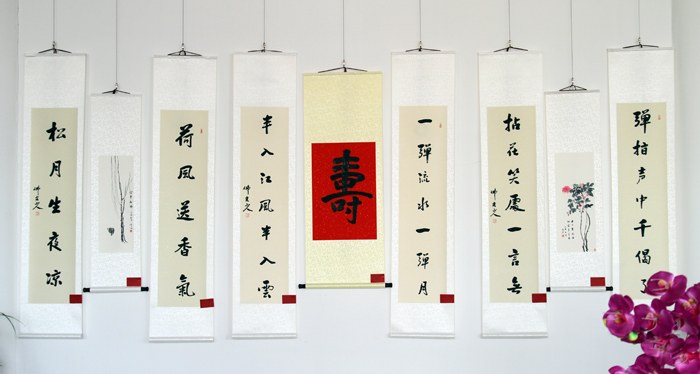 彈指声中千偈了
拈花笑處一言無
一彈流水一彈月
壽
半入江風半入雲
荷風送香氣
松月生夜凉